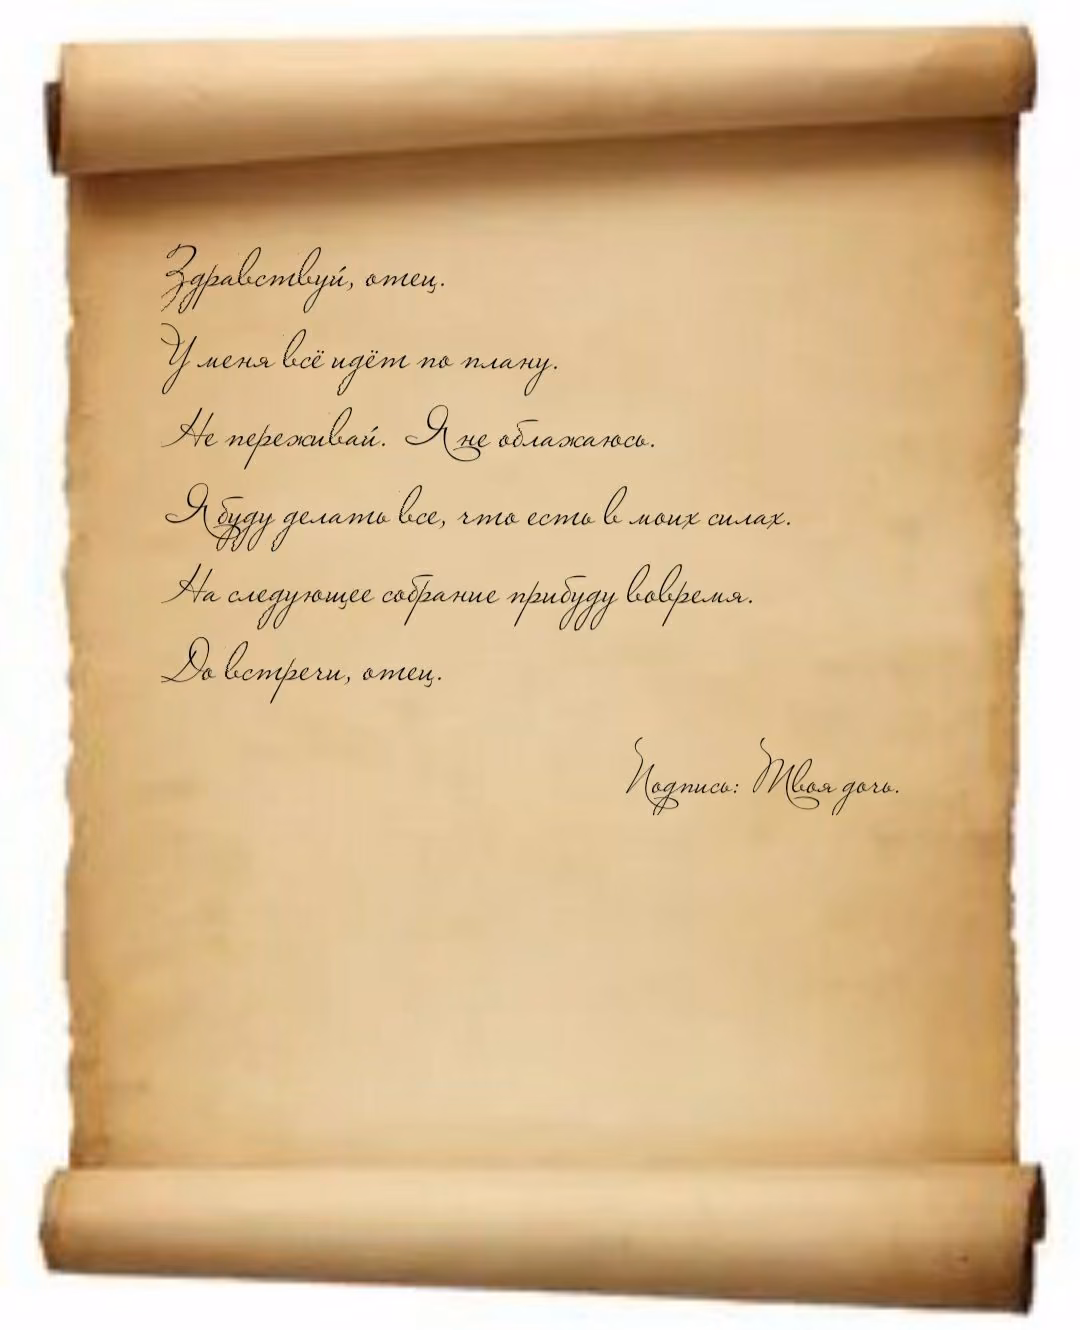 Здравствуй, отец.
У меня всё идёт по плану.
Не переживай. Я не облажаюсь.
Я буду делать все, что есть в моих силах.
На следующее собрание прибуду вовремя.
До встречи, отец.
Подпись: Твоя дочь.